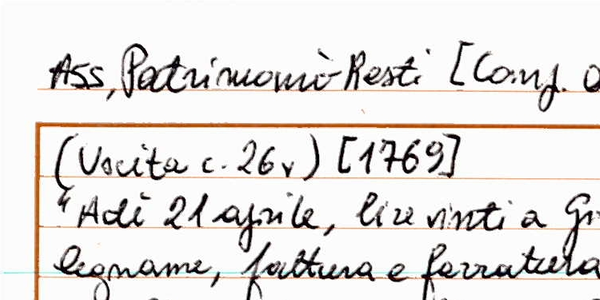 ASS, Patrimonio Resti [Conf.
(Uscita c. 26v) [1769]
"Adì 21 aprile, lire vinti a
legname, fattura e ferratura